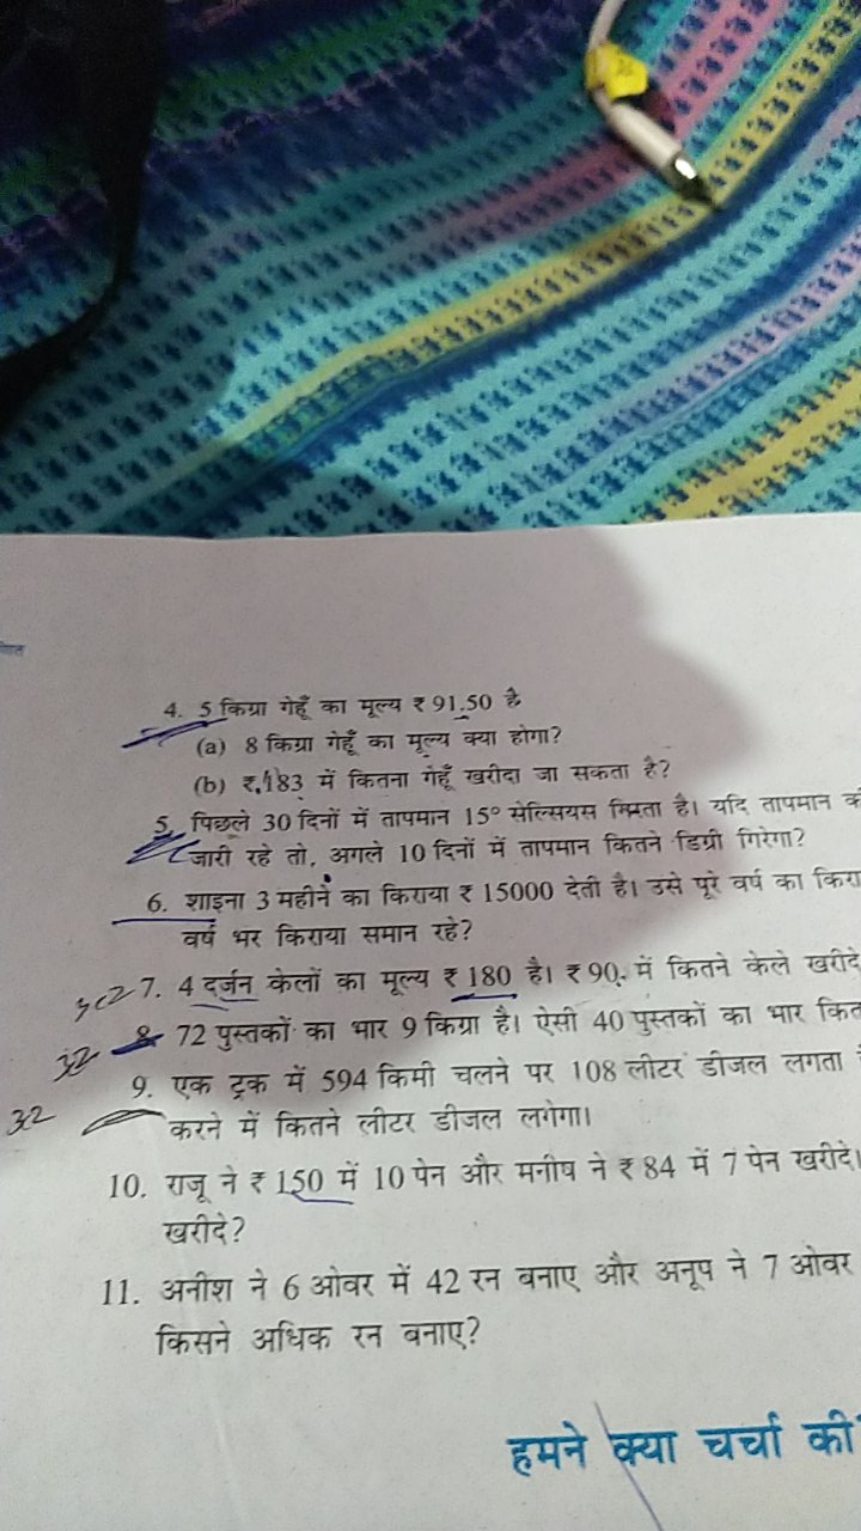 4. 5 किग्रा गेहूँ का मूल्य ₹ 91.50 है
(a) 8 किग्रा गेहूँ का मूल्य क्या होगा?
(b) ₹ 183 में कितना गेहूँ खरीदा जा सकता है?
5. पिछले 30 दिनों में तापमान 15° सेल्सियस गिरता है। यदि तापमान
जारी रहे तो, अगले 10 दिनों में तापमान कितने डिग्री गिरेगा?
6. शाइना 3 महीने का किराया ₹ 15000 देती है। उसे पूरे वर्ष का
वर्ष भर किराया समान रहे?
7. 4 दर्जन केलों का मूल्य ₹ 180 है। ₹ 90 में कितने केले खरीदे
8. 72 पुस्तकों का भार 9 किग्रा है। ऐसी 40 पुस्तकों का भार
9. एक ट्रक में 594 किमी चलने पर 108 लीटर डीजल लगता
32
करने में कितने लीटर डीजल लगेगा।
10. राजू ने ₹ 150 में 10 पेन और मनीष ने ₹ 84 में 7 पेन खरीदे।
खरीदे?
11. अनीश ने 6 ओवर में 42 रन बनाए और अनूप ने 7 ओवर
किसने अधिक रन बनाए?
हमने क्या चर्चा की